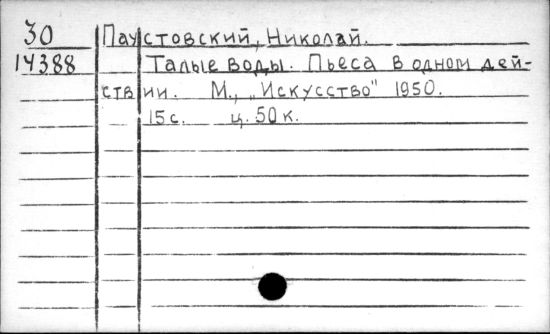 30 Паустовский, Николай.
14388 Талые воды. Пьеса в одном дей-
ствии. М., „Искусство" 1950.
15 с. ц. 50 к.